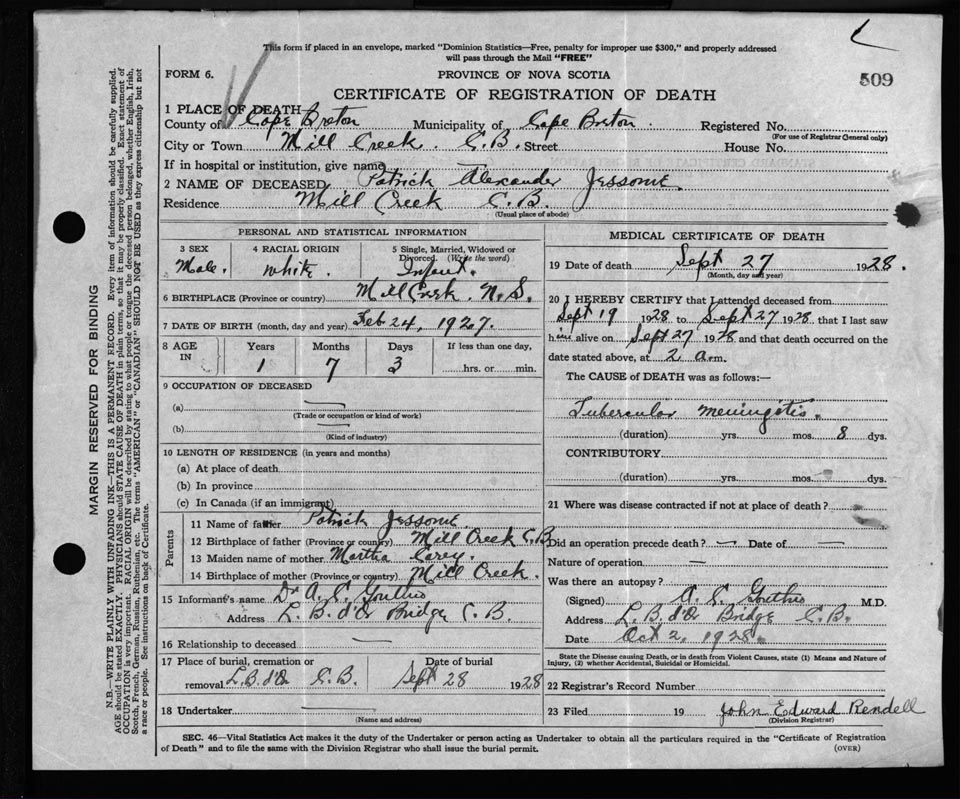 This form if placed in an envelope, marked "Dominion Statistics—Free, penalty for improper use $300," and properly addressed
will pass through the Mail "FREE"
FORM 6.
PROVINCE OF NOVA SCOTIA
509
CERTIFICATE OF REGISTRATION OF DEATH
1 PLACE OF DEATH
County of Cape Breton Municipality of Cape Breton Registered No.
(For use of Registrar General only)
City or Town Mill Creek. C.B. Street House No.
If in hospital or institution, give name
2 NAME OF DECEASED Patrick Alexander Jessome.
Residence Mill Creek C.B.
(Usual place of abode)
PERSONAL AND STATISTICAL INFORMATION
3 SEX 4 RACIAL ORIGIN 5 Single, Married, Widowed or
Divorced. (Write the word)
Male. White. Infant.
6 BIRTHPLACE (Province or country) Mill Creek. N.S.
7 DATE OF BIRTH (month, day and year) Feb 24, 1927.
8 AGE IN Years Months Days If less than one day,
1 7 3 hrs. or min.
9 OCCUPATION OF DECEASED
(a)
(Trade or occupation or kind of work)
(b)
(Kind of industry)
10 LENGTH OF RESIDENCE (in years and months)
(a) At place of death
(b) In province
(c) In Canada (if an immigrant)
Parents
11 Name of father Patrick Jessome
12 Birthplace of father (Province or country) Mill Creek C.B.
13 Maiden name of mother Martha Carey.
14 Birthplace of mother (Province or country) Mill Creek.
15 Informant's name Dr A. S.
Address L. B. d'Or Bridge C.B.
16 Relationship to deceased
17 Place of burial, cremation or Date of burial
removal L.B. d'Or C.B. Sept 28 1928
18 Undertaker
(Name and address)
MEDICAL CERTIFICATE OF DEATH
19 Date of death Sept 27 1928.
(Month, day and year)
20 I HEREBY CERTIFY that I attended deceased from
Sept 19 1928 to Sept 27 1928 that I last saw
him alive on Sept 27 1928 and that death occurred on the
date stated above, at 2 a.m.
The CAUSE of DEATH was as follows:—
Tubercular meningitis.
(duration) yrs. mos. 8 dys.
CONTRIBUTORY
(duration) yrs. mos. dys.
21 Where was disease contracted if not at place of death?
Did an operation precede death? — Date of —
Nature of operation —
Was there an autopsy?
(Signed) A. S. M.D.
Address L. B. d'Or Bridge C.B.
Date Oct 2, 1928.
State the Disease causing Death, or in death from Violent Causes, state (1) Means and Nature of
Injury, (2) whether Accidental, Suicidal or Homicidal.
22 Registrar's Record Number
23 Filed 19 John Edward Rendell
(Division Registrar)
SEC. 46—Vital Statistics Act makes it the duty of the Undertaker or person acting as Undertaker to obtain all the particulars required in the "Certificate of Registration
of Death" and to file the same with the Division Registrar who shall issue the burial permit.
(OVER)
MARGIN RESERVED FOR BINDING
N.B.—WRITE PLAINLY WITH UNFADING INK—THIS IS A PERMANENT RECORD. Every item of information should be carefully supplied.
AGE should be stated EXACTLY. PHYSICIANS should STATE CAUSE OF DEATH in plain terms, so that it may be properly classified. Exact statement of
OCCUPATION is very important. RACIAL ORIGIN will be described by stating to what people or tongue the deceased person belonged, whether English, Irish,
Scotch, French, German, Russian, Ruthenian, etc. The terms "AMERICAN" or "CANADIAN" SHOULD NOT BE USED as they express citizenship but not
a race or people. See instructions on back of Certificate.